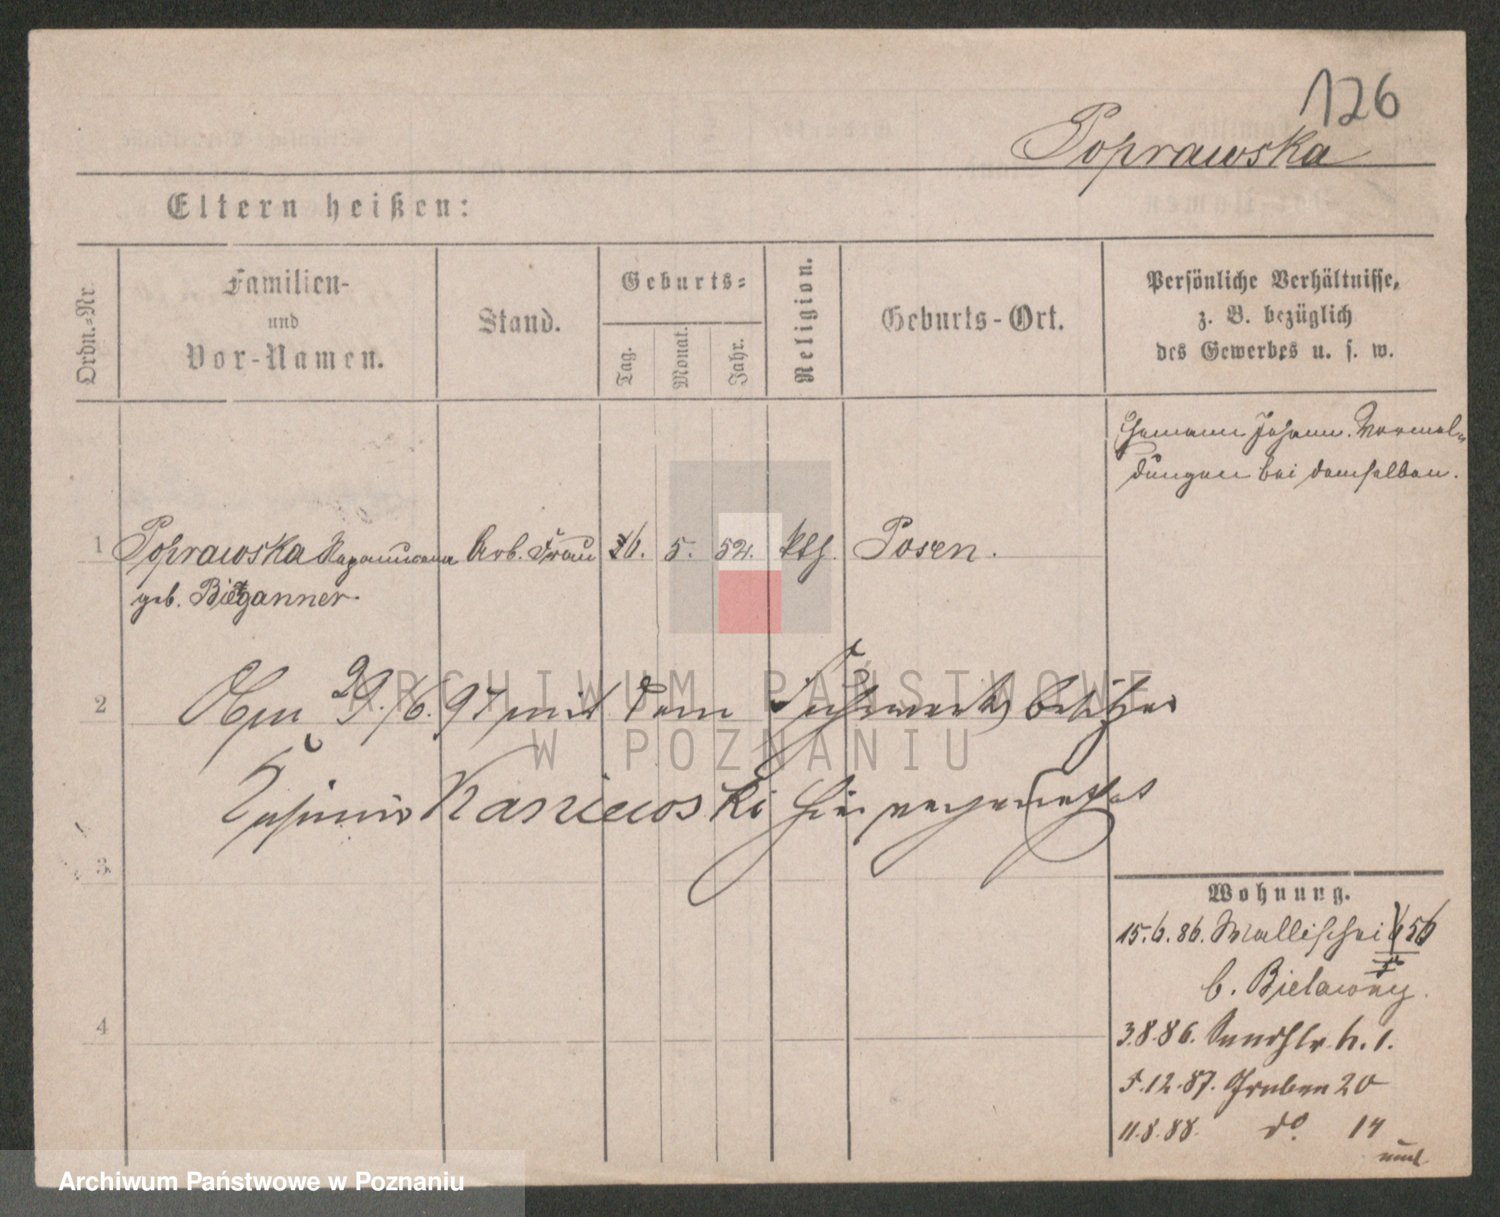 126
Poprawska
Eltern heißen:
Ordn.-Nr.
Familien-
und
Vor-Namen.
Stand.
Geburts-
Tag.
Monat.
Jahr.
Religion.
Geburts-Ort.
Persönliche Verhältnisse,
z. B. bezüglich
des Gewerbes u. s. w.
Ehemann Johann. Vormel-
dungen bei demselben.
1 Poprawska Arb. Frau 26. 5. 52. kth. Posen.
geb.
2 29./6. 97 mit dem besitzer
Kasimir Kaniewski hier
3
4
Wohnung.
15.6.86. Wallischei
b. Bielawny.
3.8.86. Sandstr. N. 1.
5.12.87. Graben 20
11.8.88. do. 14
ARCHIWUM PAŃSTWOWE
W POZNANIU
Archiwum Państwowe w Poznaniu